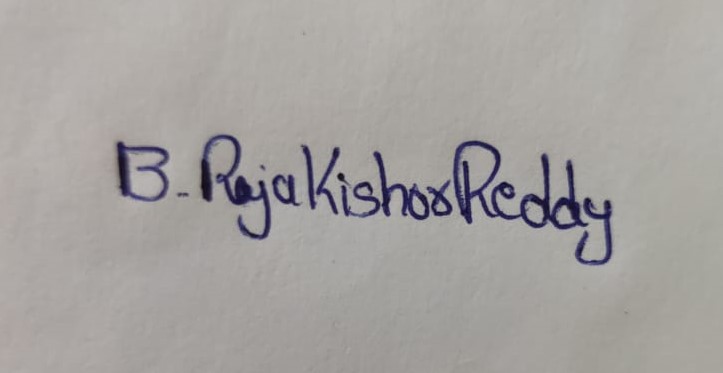 B. RajaKishorReddy